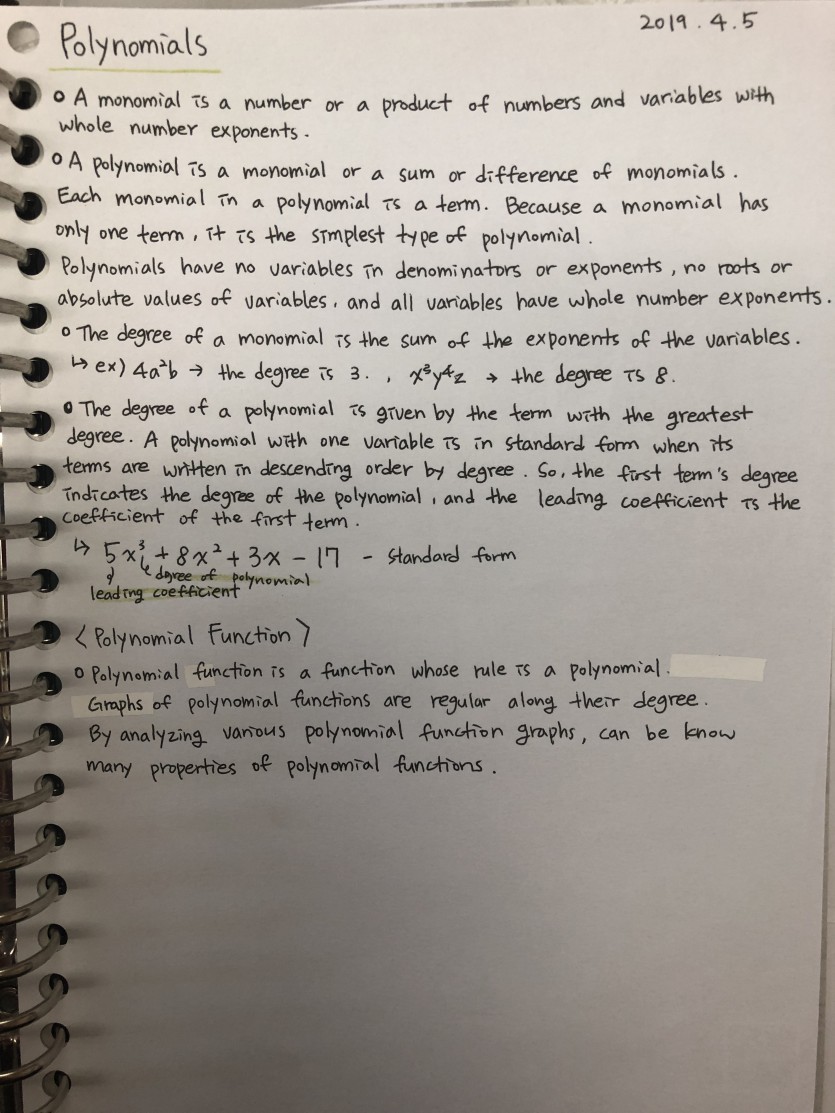 2019.4.5
Polynomials
o A monomial is a number or a product of numbers and variables with
whole number exponents.
o A polynomial is a monomial or a sum or difference of monomials.
Each monomial in a polynomial is a term. Because a monomial has
only one term, it is the simplest type of polynomial.
Polynomials have no variables in denominators or exponents, no roots or
absolute values of variables, and all variables have whole number exponents.
o The degree of a monomial is the sum of the exponents of the variables.
↳ ex) 4a²b → the degree is 3. , x³y⁴z → the degree is 8.
o The degree of a polynomial is given by the term with the greatest
degree. A polynomial with one variable is in standard form when its
terms are written in descending order by degree. So, the first term's degree
indicates the degree of the polynomial, and the leading coefficient is the
coefficient of the first term.
↳ 5x³ + 8x² + 3x - 17 - standard form
degree of polynomial
leading coefficient
<Polynomial Function>
o Polynomial function is a function whose rule is a polynomial.
Graphs of polynomial functions are regular along their degree.
By analyzing various polynomial function graphs, can be know
many properties of polynomial functions.